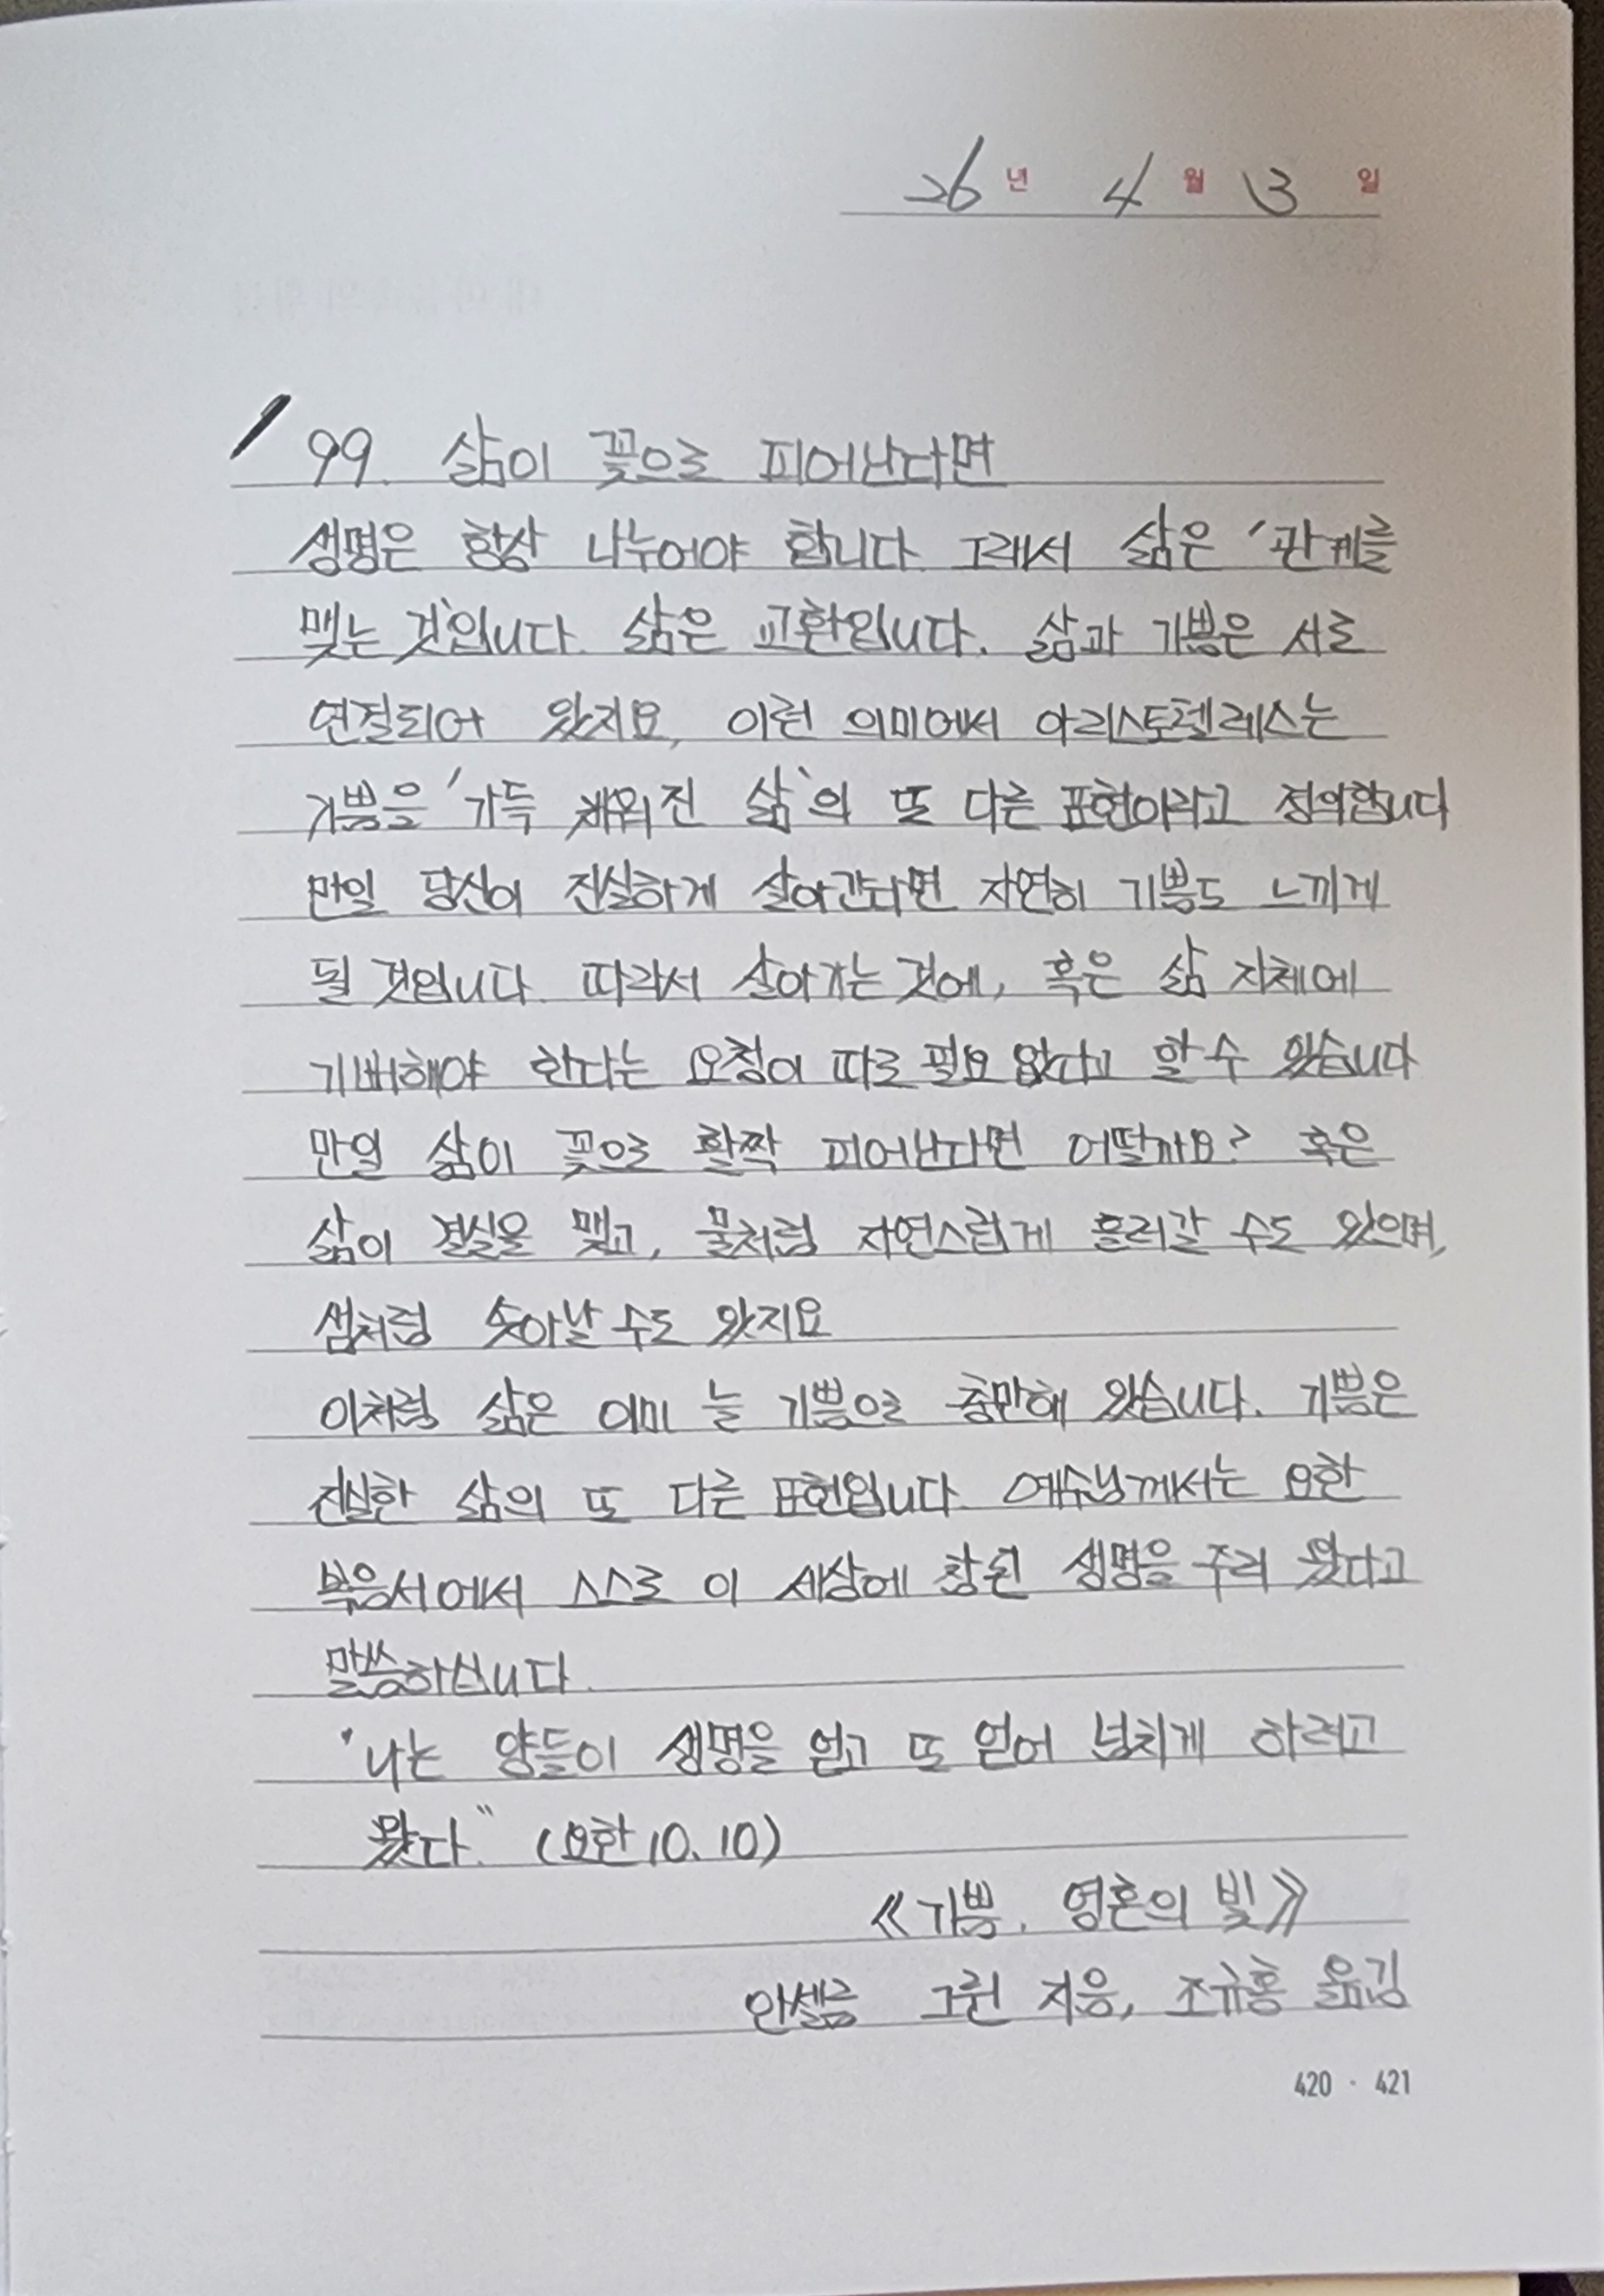 26년 4월 13일
99. 삶이 꽃으로 피어난다면
생명은 항상 나누어야 합니다. 그래서 삶은 '관계를
맺는 것'입니다. 삶은 교환입니다. 삶과 기쁨은 서로
연결되어 있지요, 이런 의미에서 아리스토텔레스는
기쁨을 '가득 채워진 삶'의 또 다른 표현이라고 정의합니다
만일 당신이 진실하게 살아간다면 자연히 기쁨도 느끼게
될 것입니다. 따라서 살아가는 것에, 혹은 삶 자체에
기뻐해야 한다는 요청이 따로 필요 없다고 할 수 있습니다
만일 삶이 꽃으로 활짝 피어난다면 어떨까요? 혹은
삶이 결실을 맺고, 물처럼 자연스럽게 흘러갈 수도 있으며,
샘처럼 솟아날 수도 있지요
이처럼 삶은 이미 늘 기쁨으로 충만해 있습니다. 기쁨은
진실한 삶의 또 다른 표현입니다. 예수님께서는 요한
복음서에서 스스로 이 세상에 참된 생명을 주러 왔다고
말씀하십니다.
"나는 양들이 생명을 얻고 또 얻어 넘치게 하려고
왔다." (요한 10.10)
《기쁨, 영혼의 빛》
안셀름 그륀 지음, 조규홍 옮김
420 · 421